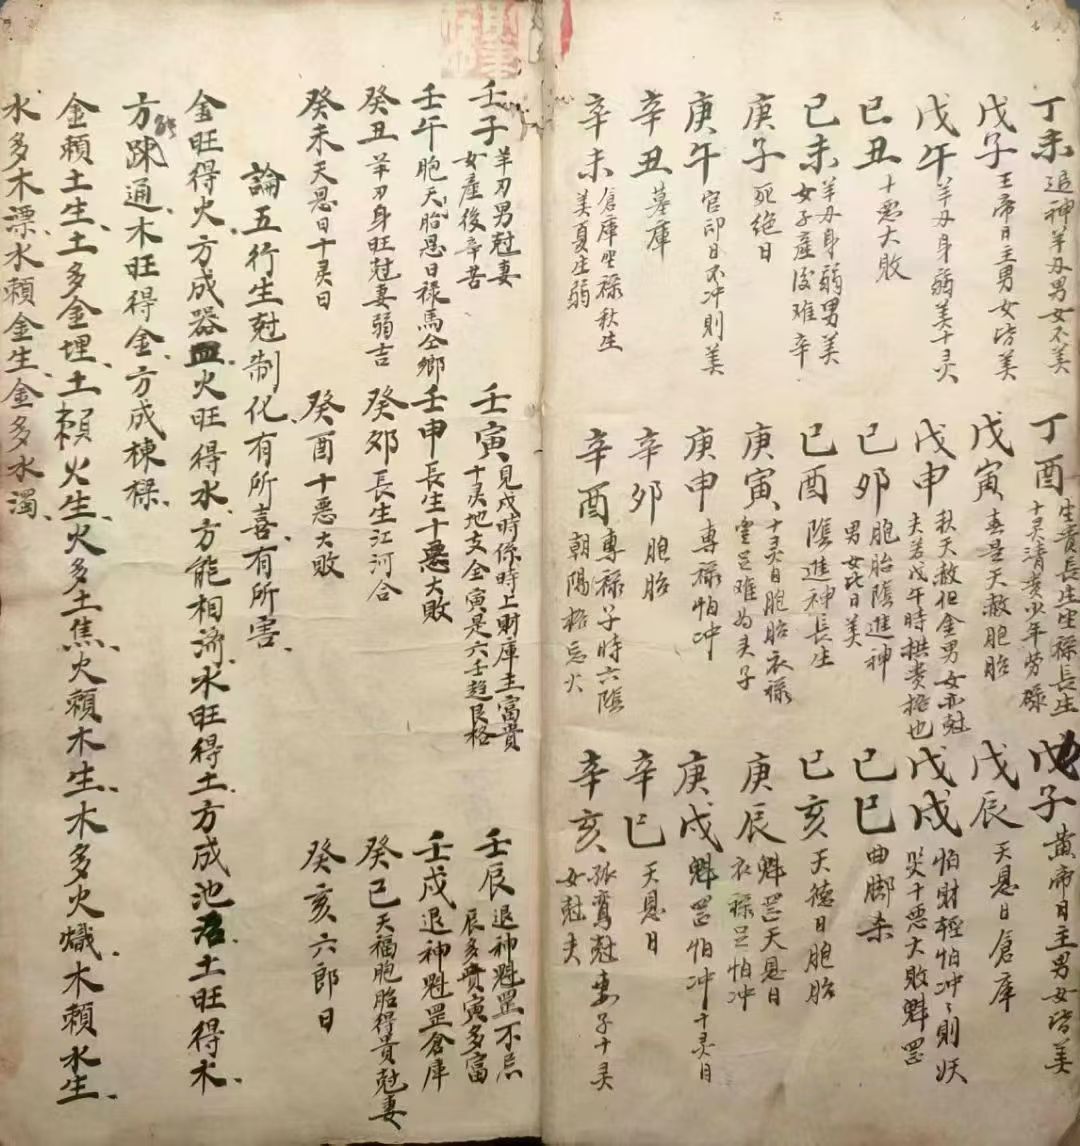 丁未 退神羊刃男女不美
丁酉 生贵長生坐禄長生
十灵清貴少年劳碌
戊子 黄帝日主男女皆美
戊子 王帝日主男女皆美
戊寅 春是天赦胞胎
戊辰 天恩日倉库
戊午 羊刃身弱美十灵
戊申 秋天赦但金男女亦尅
夫若戊午時拱贵格也
戊戌 怕財輕怕冲冲則妖
災十恶大敗魁罡
己丑 十悪大敗
己卯 胞胎陰進神
男女比日美
己巳 曲脚杀
己未 羊刃身弱男美
女子産後难辛
己酉 陰進神長生
己亥 天德日胞胎
庚子 死绝日
庚寅 十灵日胞胎衣禄
足难为夫子
庚辰 魁罡天恩日
衣禄足怕冲
庚午 官印日不冲則美
庚申 專禄怕冲
庚戌 魁罡怕冲十灵日
辛丑 墓庫
辛卯 胞胎
辛巳 天恩日
辛未 倉庫坐禄秋生
美夏生弱
辛酉 專禄子時六陰
朝陽格忌火
辛亥 孤鸾尅妻子十灵
女尅夫
壬子 羊刃男尅妻
女産後辛苦
壬寅 見戌時係時上財庫主富貴
十灵地支全寅是六壬趋艮格
壬辰 退神魁罡不忌
辰多貴寅多富
壬午 胞天胎恩日禄馬仝鄉
壬申 長生十悪大敗
壬戌 退神魁罡倉庫
癸丑 羊刃身旺尅妻弱吉
癸卯 長生江河合
癸巳 天福胞胎得貴尅妻
癸未 天恩日十灵日
癸酉 十悪大敗
癸亥 六郎日
論五行生尅制化有所喜有所害
金旺得火方成器皿火旺得水方能相济水旺得土方成池沼土旺得木
方能疎通木旺得金方成棟樑
金賴土生土多金埋土賴火生火多土焦火賴木生木多火熾木賴水生
水多木漂水賴金生金多水濁